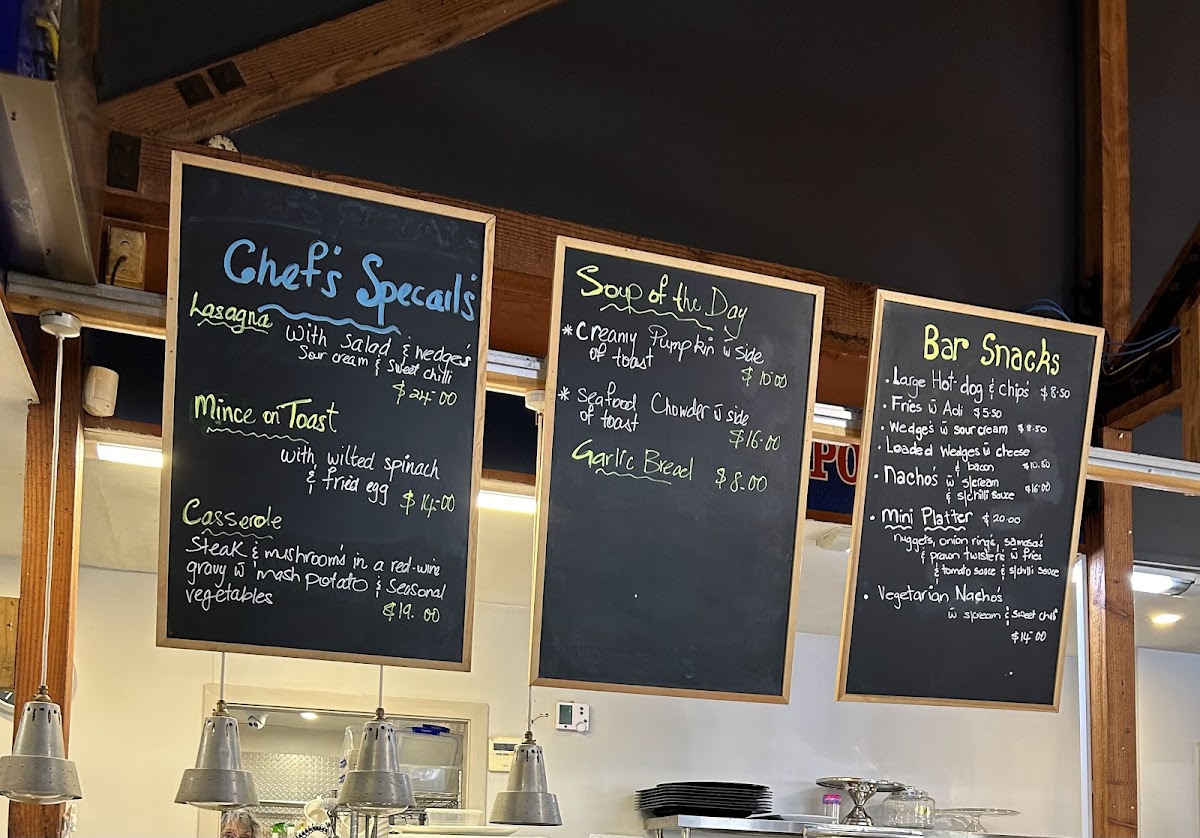 Chef's Specail's
Lasagna
with Salad & wedge's
Sour cream & sweet chilli
$24-00
Mince on Toast
with wilted spinach
& fried egg $14-00
Casserole
Steak & mushroom's in a red-wine
gravy w̄ mash potato & Seasonal
vegetables
$19.00
Soup of the Day
* Creamy Pumpkin w̄ side
of toast
$10-00
* Seafood Chowder w̄ side
of toast
$16-00
Garlic Bread $8-00
PO
Bar Snacks
• Large Hot-dog & chips $8-50
• Fries w̄ Aoli $5-50
• Wedge's w̄ sour cream $8-50
• Loaded Wedges w̄ cheese
& bacon $10.50
• Nacho's w̄ s/cream
& s/chilli sauce $16-00
• Mini Platter $20-00
Nuggets, onion ring's, samosa's
& prawn twister's w̄ fries
& tomato sauce & s/chilli sauce
• Vegetarian Nacho's
w̄ s/cream & sweet chilli
$14-00